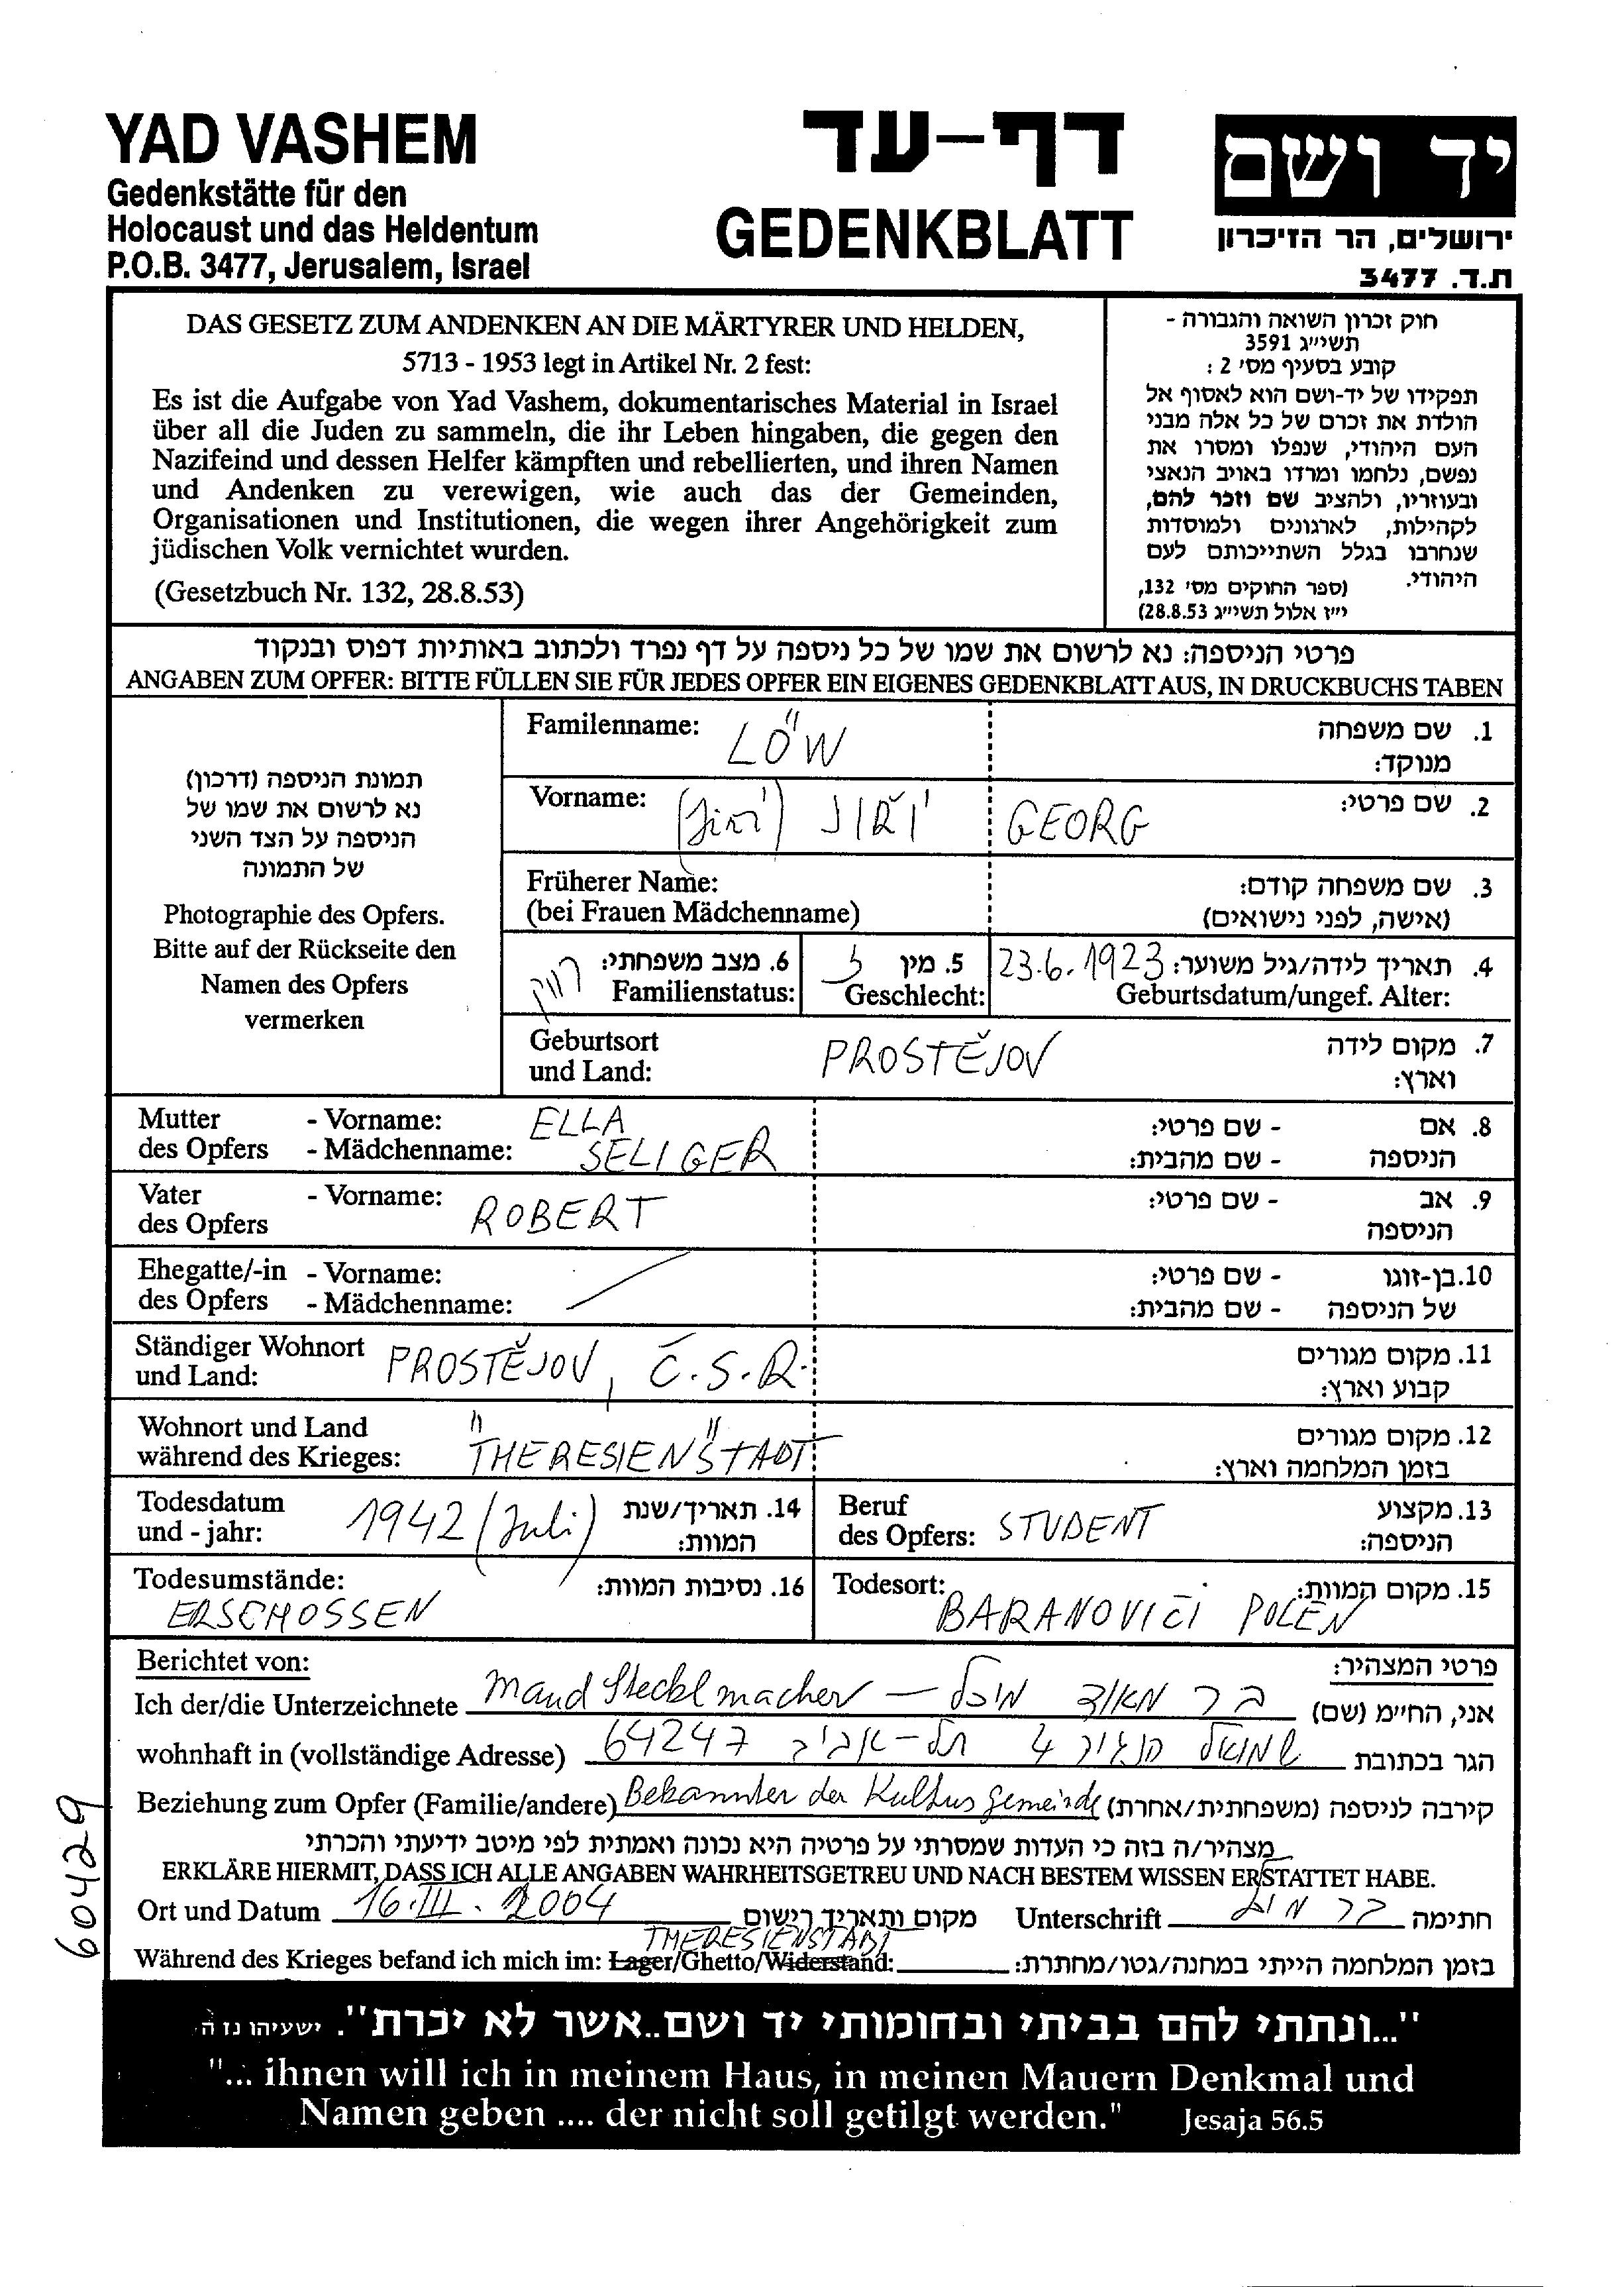 YAD VASHEM
Gedenkstätte für den
Holocaust und das Heldentum
P.O.B. 3477, Jerusalem, Israel
דף-עד
GEDENKBLATT
יד ושם
ירושלים, הר הזיכרון
ת.ד. 3477
DAS GESETZ ZUM ANDENKEN AN DIE MÄRTYRER UND HELDEN,
5713 - 1953 legt in Artikel Nr. 2 fest:
Es ist die Aufgabe von Yad Vashem, dokumentarisches Material in Israel
über all die Juden zu sammeln, die ihr Leben hingaben, die gegen den
Nazifeind und dessen Helfer kämpften und rebellierten, und ihren Namen
und Andenken zu verewigen, wie auch das der Gemeinden,
Organisationen und Institutionen, die wegen ihrer Angehörigkeit zum
jüdischen Volk vernichtet wurden.
(Gesetzbuch Nr. 132, 28.8.53)
חוק זכרון השואה והגבורה -
תשי"ג 3591
קובע בסעיף מס' 2 :
תפקידו של יד-ושם הוא לאסוף אל
הולדת את זכרם של כל אלה מבני
העם היהודי, שנפלו ומסרו את
נפשם, נלחמו ומרדו באויב הנאצי
ובעוזריו, ולהציב שם וזכר להם,
לקהילות, לארגונים ולמוסדות
שנחרבו בגלל השתייכותם לעם
היהודי. (ספר החוקים מס' 132,
י"ז אלול תשי"ג 28.8.53)
פרטי הניספה: נא לרשום את שמו של כל ניספה על דף נפרד ולכתוב באותיות דפוס ובנקוד
ANGABEN ZUM OPFER: BITTE FÜLLEN SIE FÜR JEDES OPFER EIN EIGENES GEDENKBLATT AUS, IN DRUCKBUCHS TABEN
תמונת הניספה (דרכון)
נא לרשום את שמו של
הניספה על הצד השני
של התמונה
Photographie des Opfers.
Bitte auf der Rückseite den
Namen des Opfers
vermerken
Familenname: LÖW 1. שם משפחה
מנוקד:
Vorname: (Jiří) JIŘÍ GEORG 2. שם פרטי:
Früherer Name: 3. שם משפחה קודם:
(bei Frauen Mädchenname) (אישה, לפני נישואים)
6. מצב משפחתי: רווק 5. מין ז 4. תאריך לידה/גיל משוער: 23.6.1923
Familienstatus: Geschlecht: Geburtsdatum/ungef. Alter:
Geburtsort PROSTĚJOV 7. מקום לידה
und Land: וארץ:
Mutter - Vorname: ELLA - שם פרטי: 8. אם
des Opfers - Mädchenname: SELIGER - שם מהבית: הניספה
Vater - Vorname: ROBERT - שם פרטי: 9. אב
des Opfers הניספה
Ehegatte/-in - Vorname: - שם פרטי: 10. בן-זוגו
des Opfers - Mädchenname: - שם מהבית: של הניספה
Ständiger Wohnort PROSTĚJOV, Č.S.R. 11. מקום מגורים
und Land: קבוע וארץ:
Wohnort und Land "THERESIENSTADT" 12. מקום מגורים
während des Krieges: בזמן המלחמה וארץ:
Todesdatum 1942 (Juli) 14. תאריך/שנת
und - jahr: המוות:
Beruf STUDENT 13. מקצוע
des Opfers: הניספה:
Todesumstände: 16. נסיבות המוות:
ERSCHOSSEN
Todesort: 15. מקום המוות:
BARANOVIČI POLEN
Berichtet von: פרטי המצהיר:
Ich der/die Unterzeichnete Maud Steckelmacher — בר מאוד מיכל אני, החיימ (שם)
wohnhaft in (vollständige Adresse) שמואל הנגיד 4 תל-אביב 64247 הגר בכתובת
Beziehung zum Opfer (Familie/andere) Bekannter der Kultusgemeinde קירבה לניספה (משפחתית/אחרת)
מצהיר/ה בזה כי העדות שמסרתי על פרטיה היא נכונה ואמתית לפי מיטב ידיעתי והכרתי
ERKLÄRE HIERMIT, DASS ICH ALLE ANGABEN WAHRHEITSGETREU UND NACH BESTEM WISSEN ERSTATTET HABE.
Ort und Datum 16.III.2004 מקום ותאריך רישום Unterschrift חתימה
THERESIENSTADT
Während des Krieges befand ich mich im: Lager/Ghetto/Widerstand: בזמן המלחמה הייתי במחנה/גטו/מחתרת:
60429
"...ונתתי להם בביתי ובחומותי יד ושם..אשר לא יכרת". ישעיהו נז ה
"... ihnen will ich in meinem Haus, in meinen Mauern Denkmal und
Namen geben .... der nicht soll getilgt werden." Jesaja 56.5